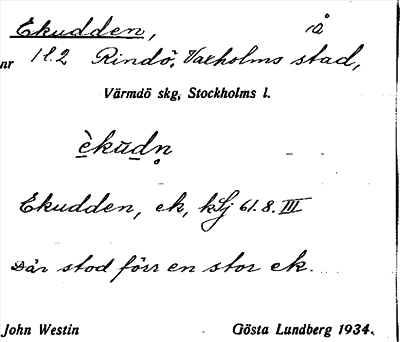 Ekudden, rå
nr 1 l. 2 Rindö, Vaxholms stad,
Värmdö skg, Stockholms l.
èkūdn̥
Ekudden, ek, kSj 61.8.III
Där stod förr en stor ek.
John Westin Gösta Lundberg 1934.